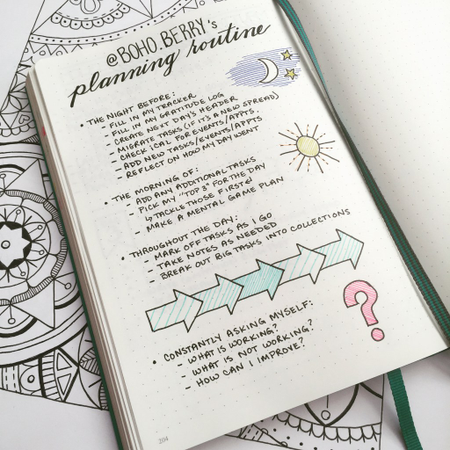 @BOHO.BERRY's
planning routine
• THE NIGHT BEFORE:
– FILL IN MY TRACKER
– FILL IN MY GRATITUDE LOG
– CREATE NEXT DAY'S HEADER
– MIGRATE TASKS (IF IT'S A NEW SPREAD)
– CHECK ICAL FOR EVENTS/APPTS.
– ADD NEW TASKS/EVENTS/APPTS
– REFLECT ON HOW MY DAY WENT
• THE MORNING OF:
– ADD ANY ADDITIONAL TASKS
– PICK MY "TOP 3" FOR THE DAY
↳ TACKLE THOSE FIRST!
– MAKE A MENTAL GAME PLAN
• THROUGHOUT THE DAY:
– MARK OFF TASKS AS I GO
– TAKE NOTES AS NEEDED
– BREAK OUT BIG TASKS INTO COLLECTIONS
• CONSTANTLY ASKING MYSELF:
– WHAT IS WORKING?
– WHAT IS NOT WORKING?
– HOW CAN I IMPROVE?
?
204